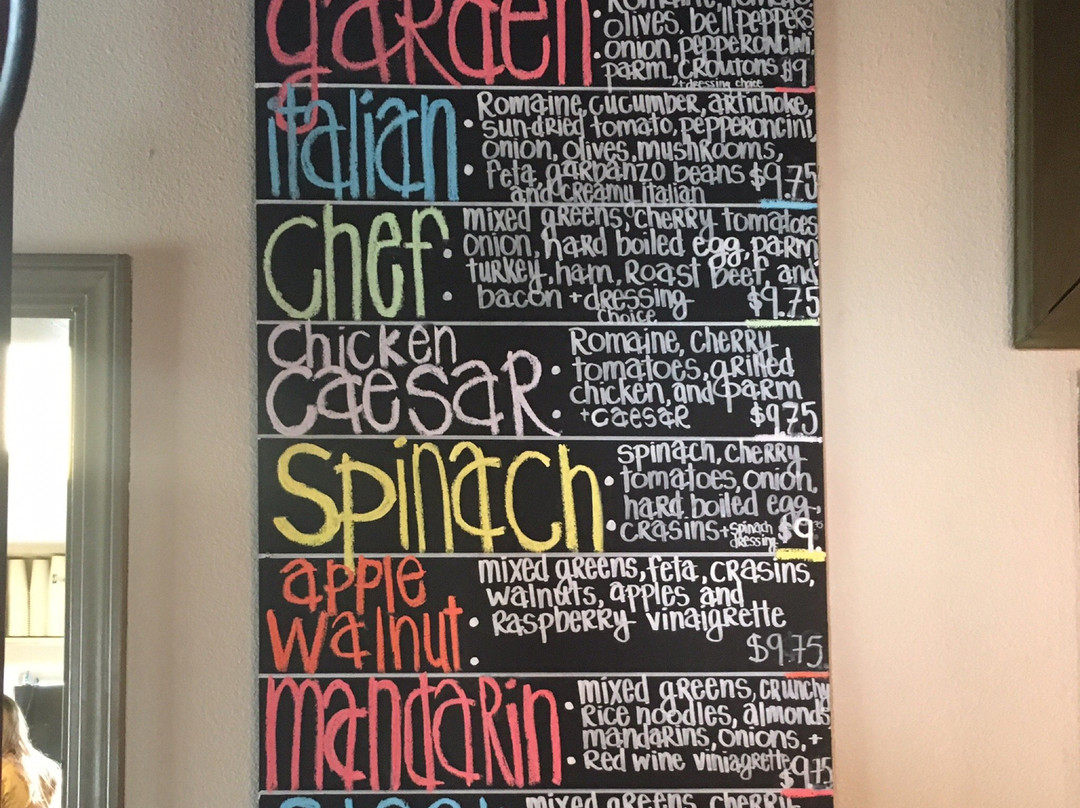 garden:
Romaine, tomato,
olives, bell peppers
onion, pepperoncini,
parm, croutons $9
+dressing choice
italian:
Romaine, cucumber, artichoke,
sun-dried tomato, pepperoncini,
onion, olives, mushrooms,
feta, garbanzo beans $9.75
and creamy italian
chef:
mixed greens, cherry tomatoes
onion, hard boiled egg, parm
turkey, ham, Roast Beef, and
bacon + dressing $9.75
choice
chicken
caesar:
Romaine, cherry
tomatoes, grilled
chicken, and parm
+caesar $9.75
spinach:
spinach, cherry
tomatoes, onion,
hard boiled egg,
crasins +spinach $9.75
dressing
apple
walnut:
mixed greens, feta, crasins,
walnuts, apples and
raspberry vinaigrette
$9.75
mandarin:
mixed greens, crunchy
Rice noodles, almonds
mandarins, onions, +
Red wine viniagrette $9.75
mixed greens, cherrie